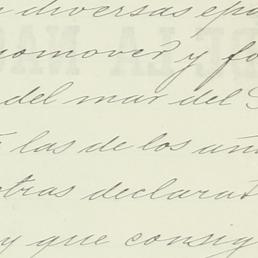 diversas epo
romover y fo
del mar del S
las de los año
otras declarat
y que consig